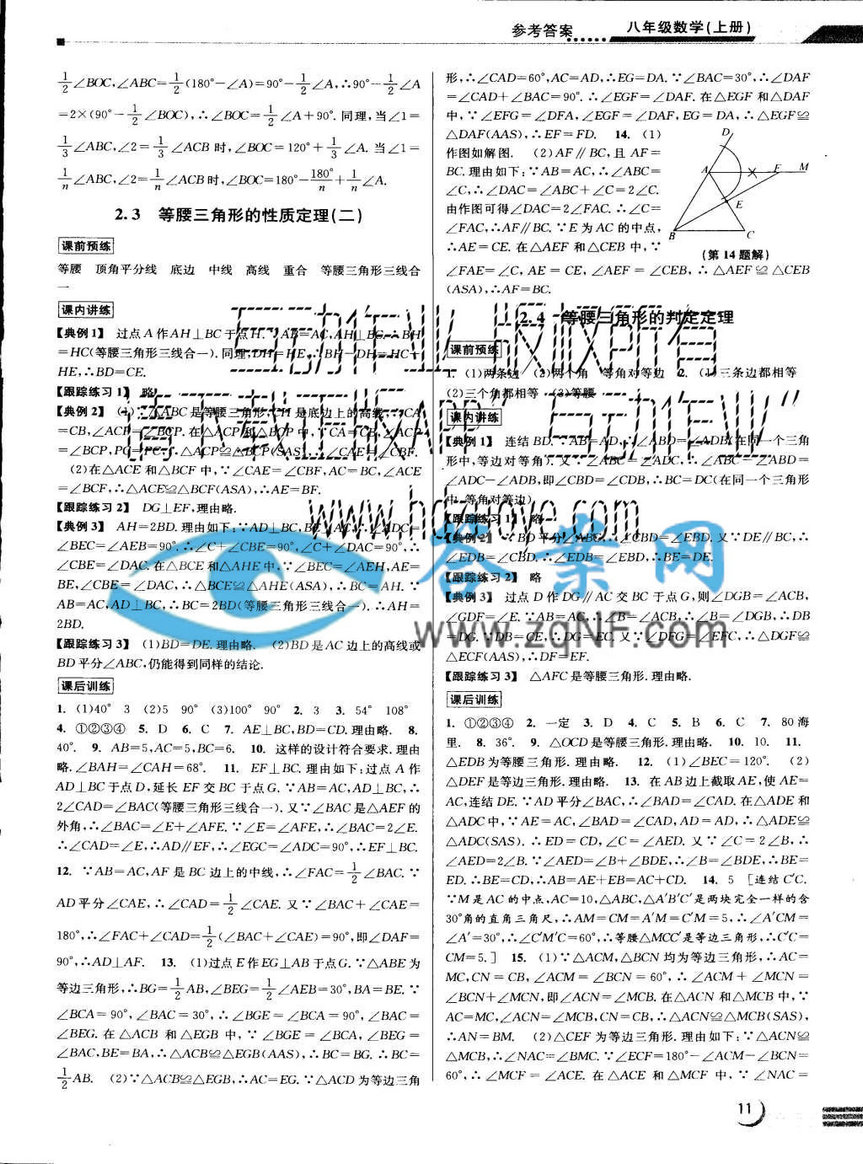 参考答案 八年级数学(上册)
1/2∠BOC,∠ABC=1/2(180°-∠A)=90°-1/2∠A,∴90°-1/2∠A
=2×(90°-1/2∠BOC),∴∠BOC=1/2∠A+90°. 同理,当∠1=
1/3∠ABC,∠2=1/3∠ACB时,∠BOC=120°+1/3∠A. 当∠1=
1/n∠ABC,∠2=1/n∠ACB时,∠BOC=180°-180°/n+1/n∠A.
2.3 等腰三角形的性质定理(二)
课前预练
等腰 顶角平分线 底边 中线 高线 重合 等腰三角形三线合
一
课内讲练
【典例1】 过点A作AH⊥BC于点H.∵AB=AC,AH⊥BC,∴BH
=HC(等腰三角形三线合一).同理,DH=HE,∴BH-DH=HC-
HE,∴BD=CE.
【跟踪练习1】 略
【典例2】 (1)∵△ABC是等腰三角形,CH是底边上的高线,∴CA
=CB,∠ACP=∠BCP.在△ACP和△BCP中,∵CA=CB,∠ACP
=∠BCP,PC=PC,∴△ACP≌△BCP(SAS),∴∠CAE=∠CBF.
(2)在△ACE和△BCF中,∵∠CAE=∠CBF,AC=BC,∠ACE
=∠BCF,∴△ACE≌△BCF(ASA),∴AE=BF.
【跟踪练习2】 DG⊥EF,理由略.
【典例3】 AH=2BD.理由如下:∵AD⊥BC,BE⊥AC,∴∠ADC=
∠BEC=∠AEB=90°,∴∠C+∠CBE=90°,∠C+∠DAC=90°,∴
∠CBE=∠DAC.在△BCE和△AHE中,∵∠BEC=∠AEH,AE=
BE,∠CBE=∠DAC,∴△BCE≌△AHE(ASA),∴BC=AH.∵
AB=AC,AD⊥BC,∴BC=2BD(等腰三角形三线合一).∴AH=
2BD.
【跟踪练习3】 (1)BD=DE.理由略. (2)BD是AC边上的高线或
BD平分∠ABC,仍能得到同样的结论.
课后训练
1. (1)40° 3 (2)5 90° (3)100° 90° 2. 3 3. 54° 108°
4. ①②③④ 5. D 6. C 7. AE⊥BC,BD=CD.理由略. 8.
40°. 9. AB=5,AC=5,BC=6. 10. 这样的设计符合要求.理由
略.∠BAH=∠CAH=68°. 11. EF⊥BC.理由如下:过点A作
AD⊥BC于点D,延长EF交BC于点G.∵AB=AC,AD⊥BC,∴
2∠CAD=∠BAC(等腰三角形三线合一).又∵∠BAC是△AEF的
外角,∴∠BAC=∠E+∠AFE.∵∠E=∠AFE,∴∠BAC=2∠E.
∴∠CAD=∠E,∴AD∥EF,∴∠EGC=∠ADC=90°,∴EF⊥BC.
12. ∵AB=AC,AF是BC边上的中线,∴∠FAC=1/2∠BAC.∵
AD平分∠CAE,∴∠CAD=1/2∠CAE.又∵∠BAC+∠CAE=
180°,∴∠FAC+∠CAD=1/2(∠BAC+∠CAE)=90°,即∠DAF=
90°,∴AD⊥AF. 13. (1)过点E作EG⊥AB于点G.∵△ABE为
等边三角形,∴BG=1/2AB,∠BEG=1/2∠AEB=30°,BA=BE.∵
∠BCA=90°,∠BAC=30°,∴∠BGE=∠BCA=90°,∠BAC=
∠BEG.在△ACB和△EGB中,∵∠BGE=∠BCA,∠BEG=
∠BAC,BE=BA,∴△ACB≌△EGB(AAS),∴BC=BG.∴BC=
1/2AB. (2)∵△ACB≌△EGB,∴AC=EG.∵△ACD为等边三角
形,∴∠CAD=60°,AC=AD,∴EG=DA.∵∠BAC=30°,∴∠DAF
=∠CAD+∠BAC=90°.∴∠EGF=∠DAF.在△EGF和△DAF
中,∵∠EFG=∠DFA,∠EGF=∠DAF,EG=DA,∴△EGF≌
△DAF(AAS),∴EF=FD. 14. (1)
作图如解图. (2)AF∥BC,且AF=
BC.理由如下:∵AB=AC,∴∠ABC=
∠C,∴∠DAC=∠ABC+∠C=2∠C.
由作图可得∠DAC=2∠FAC.∴∠C=
∠FAC,∴AF∥BC.∵E为AC的中点,
∴AE=CE.在△AEF和△CEB中,∵
D A F M E B C
(第14题解)
∠FAE=∠C,AE=CE,∠AEF=∠CEB,∴△AEF≌△CEB
(ASA),∴AF=BC.
2.4 等腰三角形的判定定理
课前预练
1. (1)两条边 (2)两个角 等角对等边 2. (1)三条边都相等
(2)三个角都相等 (3)等腰
课内讲练
【典例1】 连结BD.∵AB=AD,∴∠ABD=∠ADB(在同一个三角
形中,等边对等角).又∵∠ABC=∠ADC,∴∠ABC-∠ABD=
∠ADC-∠ADB,即∠CBD=∠CDB,∴BC=DC(在同一个三角形
中,等角对等边).
【跟踪练习1】 略
【典例2】 ∵BD平分∠ABC,∴∠CBD=∠EBD.又∵DE∥BC,∴
∠EDB=∠CBD,∴∠EBD=∠EDB,∴BE=DE.
【跟踪练习2】 略
【典例3】 过点D作DG∥AC交BC于点G,则∠DGB=∠ACB,
∠GDF=∠E.∵AB=AC,∴∠B=∠ACB,∴∠B=∠DGB,∴DB
=DG.∵DB=CE,∴DG=EC.又∵∠DFG=∠EFC,∴△DGF≌
△ECF(AAS),∴DF=EF.
【跟踪练习3】 △AFC是等腰三角形.理由略.
课后训练
1. ①②③④ 2. 一定 3. D 4. C 5. B 6. C 7. 80海
里. 8. 36°. 9. △OCD是等腰三角形.理由略. 10. 10. 11.
△EDB为等腰三角形.理由略. 12. (1)∠BEC=120°. (2)
△DEF是等边三角形.理由略. 13. 在AB边上截取AE,使AE=
AC,连结DE.∵AD平分∠BAC,∴∠BAD=∠CAD.在△ADE和
△ADC中,∵AE=AC,∠BAD=∠CAD,AD=AD,∴△ADE≌
△ADC(SAS).∴ED=CD,∠C=∠AED.又∵∠C=2∠B,∴
∠AED=2∠B.∵∠AED=∠B+∠BDE,∴∠B=∠BDE,∴BE=
ED.∴BE=CD,∴AB=AE+EB=AC+CD. 14. 5 [连结C′C.
∵M是AC的中点,AC=10,△ABC,△A′B′C′是两块完全一样的含
30°角的直角三角尺,∴AM=CM=A′M=C′M=5,∴∠A′CM=
∠A′=30°,∴∠C′MC=60°,∴等腰△MCC′是等边三角形,∴C′C=
CM=5.] 15. (1)∵△ACM,△BCN均为等边三角形,∴AC=
MC,CN=CB,∠ACM=∠BCN=60°,∴∠ACM+∠MCN=
∠BCN+∠MCN,即∠ACN=∠MCB.在△ACN和△MCB中,∵
AC=MC,∠ACN=∠MCB,CN=CB,∴△ACN≌△MCB(SAS),
∴AN=BM. (2)△CEF为等边三角形.理由如下:∵△ACN≌
△MCB,∴∠NAC=∠BMC.∵∠ECF=180°-∠ACM-∠BCN=
60°,∴∠MCF=∠ACE.在△ACE和△MCF中,∵∠NAC=
11
答案网
www.zqNF.com